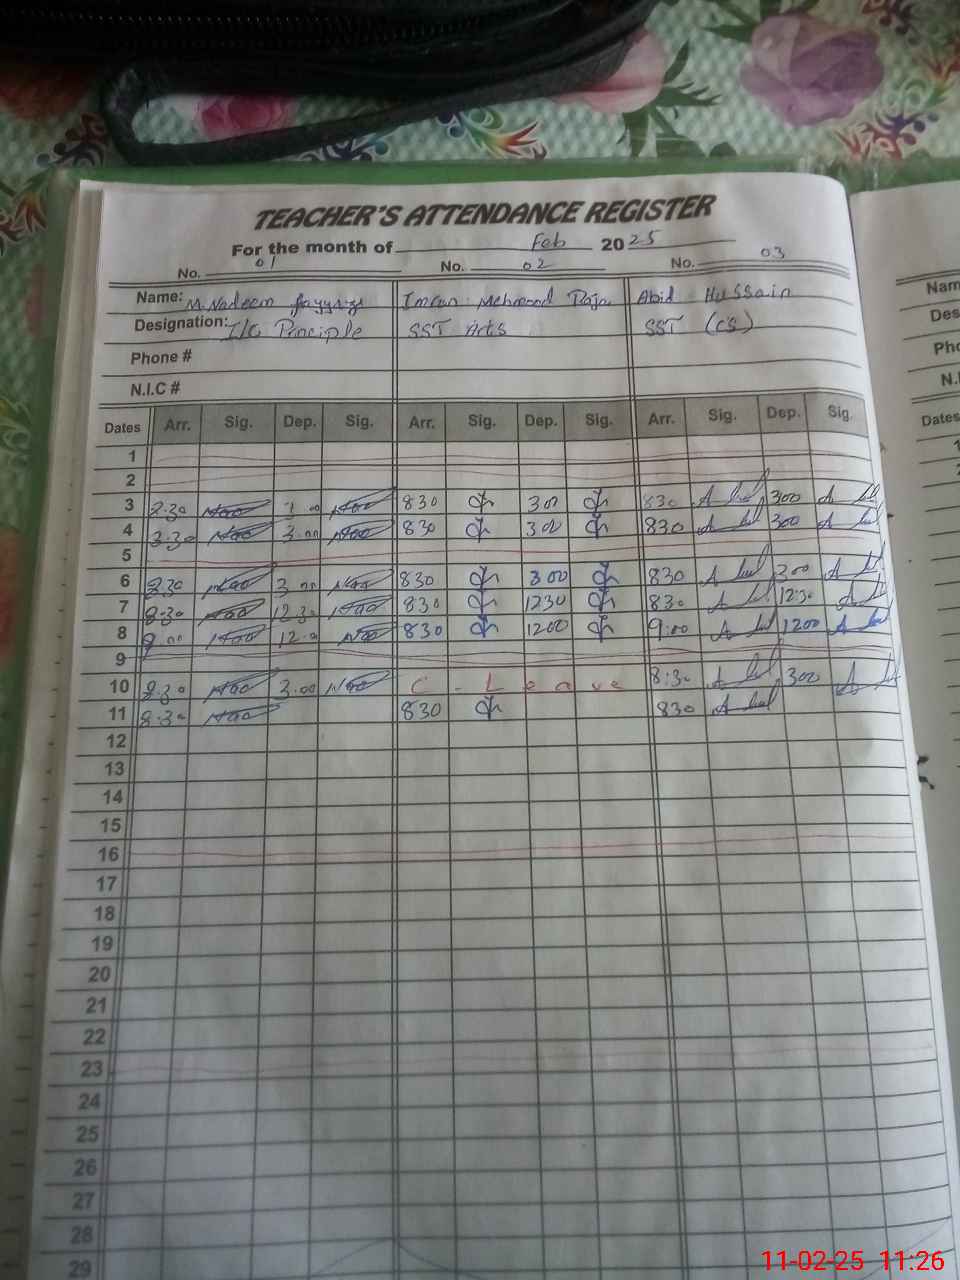 TEACHER'S ATTENDANCE REGISTER
For the month of Feb 2025
No. 01 No. 02 No. 03
Name: M. Nadeem Imran Mehmood Raja Abid Hussain
Designation: I/C Principle SST Arts SST (CS)
Phone #
N.I.C #
Dates Arr. Sig. Dep. Sig. Arr. Sig. Dep. Sig. Arr. Sig. Dep. Sig.
1
2
3 8:30 830 300 830 300
4 8:30 3:00 830 300 830 300
5
6 8:30 3:00 830 300 830 300
7 8:30 12:30 830 1230 830 12:30
8 9:00 12:0 830 1200 9:00 1200
9
10 8:30 3:00 C. Leave 8:30 300
11 8:30 830 830
12
13
14
15
16
17
18
19
20
21
22
23
24
25
26
27
28
29
Nam
Des
Pho
N.I
Dates
11-02-25 11:26